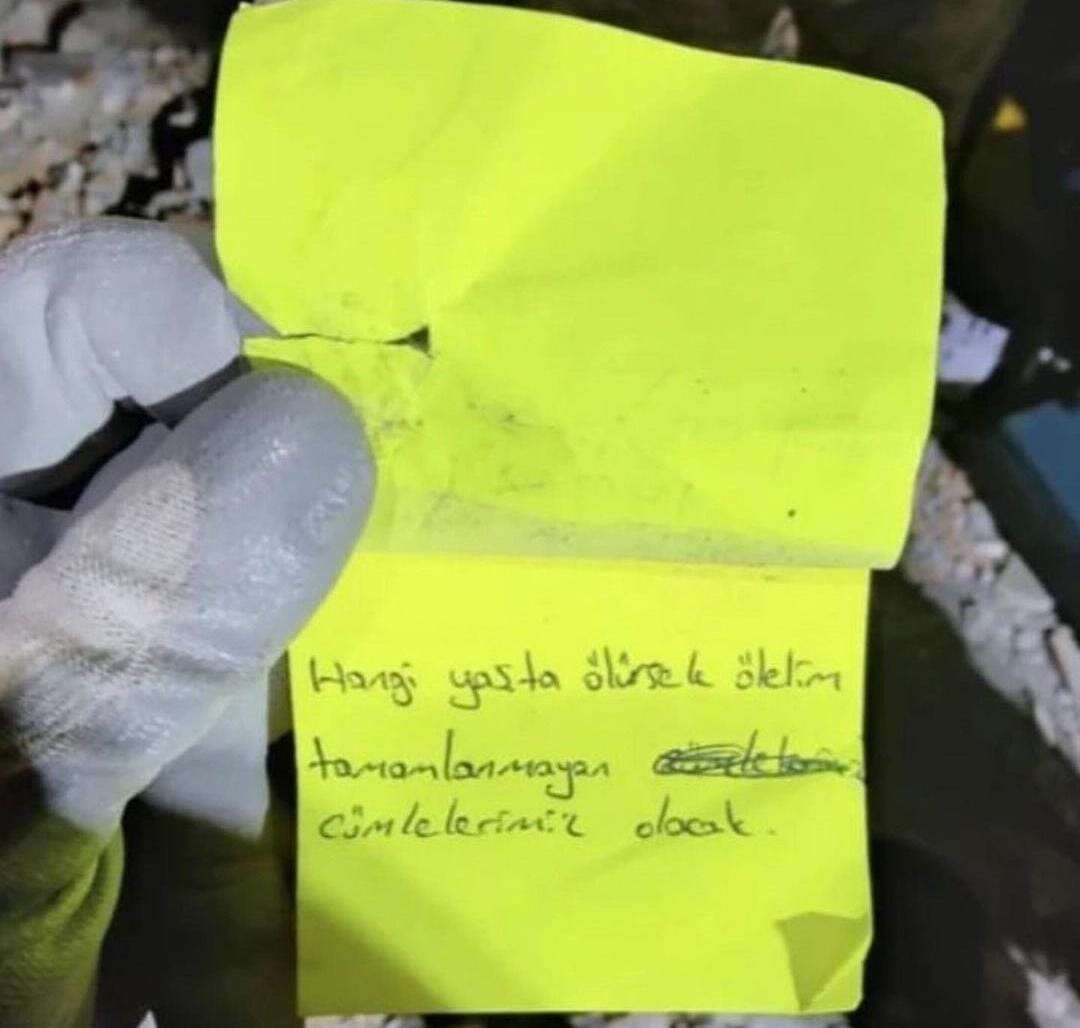 Hangi yaşta ölürsek ölelim
tamamlanmayan
cümlelerimiz olacak.